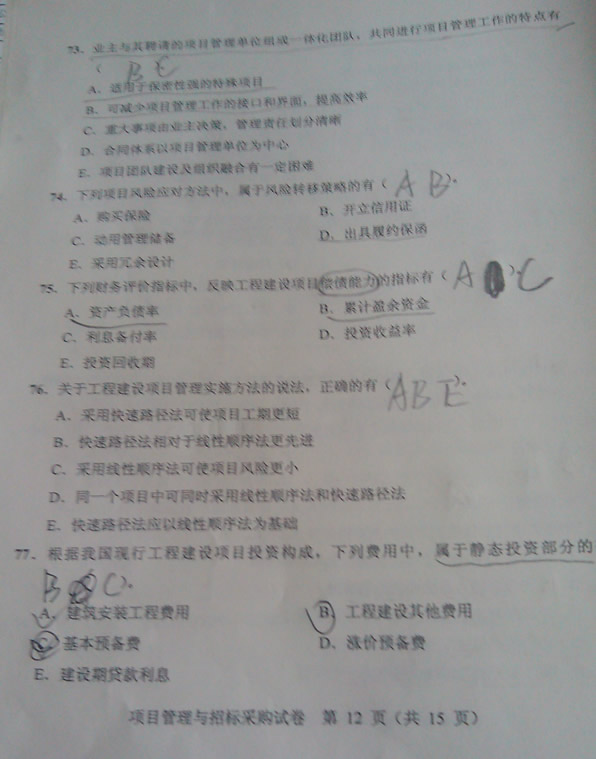 73. 业主与其聘请的项目管理单位组成一体化团队，共同进行项目管理工作的特点有
（ B E
A. 适用于保密性强的特殊项目
B. 可减少项目管理工作的接口和界面，提高效率
C. 重大事项由业主决策，管理责任划分清晰
D. 合同体系以项目管理单位为中心
E. 项目团队建设及组织融合有一定困难
74. 下列项目风险应对方法中，属于风险转移策略的有（ A B ）。
A. 购买保险 B. 开立信用证
C. 动用管理储备 D. 出具履约保函
E. 采用冗余设计
75. 下列财务评价指标中，反映工程建设项目偿债能力的指标有（ A ） C
A. 资产负债率 B. 累计盈余资金
C. 利息备付率 D. 投资收益率
E. 投资回收期
76. 关于工程建设项目管理实施方法的说法，正确的有（ A B E ）。
A. 采用快速路径法可使项目工期更短
B. 快速路径法相对于线性顺序法更先进
C. 采用线性顺序法可使项目风险更小
D. 同一个项目中可同时采用线性顺序法和快速路径法
E. 快速路径法应以线性顺序法为基础
77. 根据我国现行工程建设项目投资构成，下列费用中，属于静态投资部分的
B C ）。
A. 建筑安装工程费用 B. 工程建设其他费用
C. 基本预备费 D. 涨价预备费
E. 建设期贷款利息
项目管理与招标采购试卷 第 12 页（共 15 页）